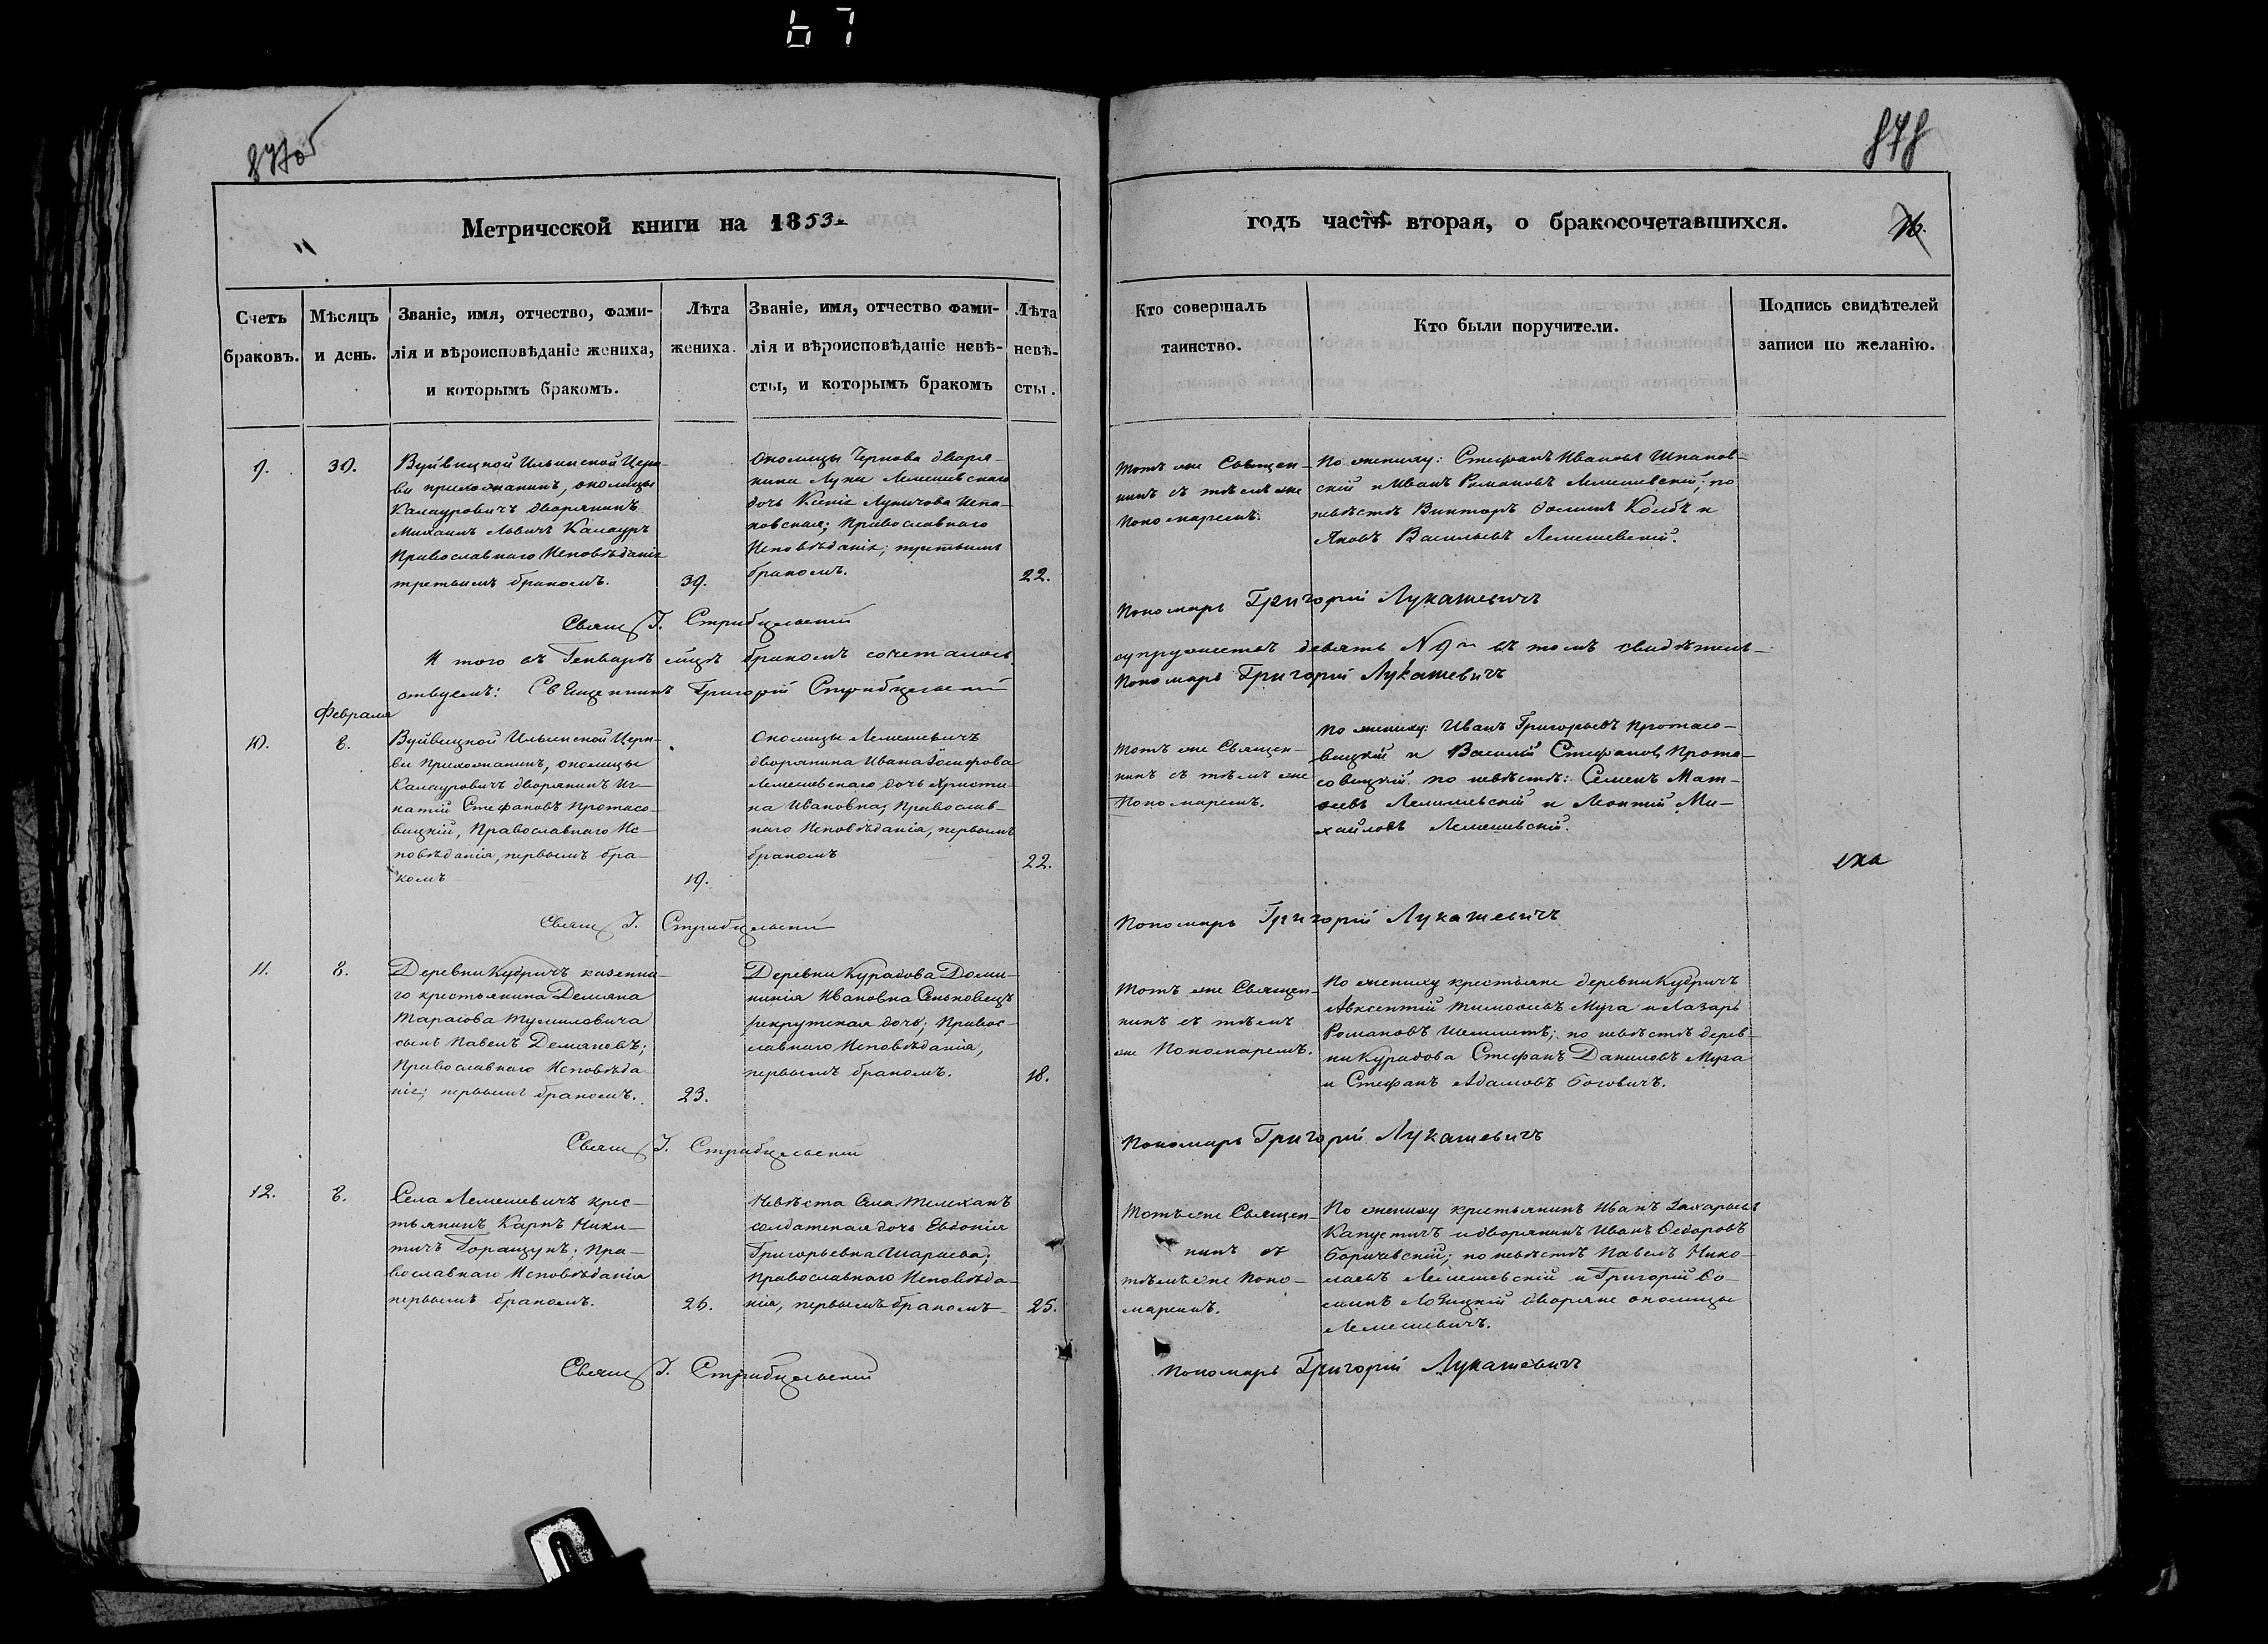 67
877об
878
Метрической книги на 1853
годъ часть вторая, о бракосочетавшихся.
Счетъ браковъ.
Мѣсяцъ и день.
Званіе, имя, отчество, фами-
лія и вѣроисповѣданіе жениха,
и которымъ бракомъ.
Лѣта
жениха.
Званіе, имя, отчество фами-
лія и вѣроисповѣданіе невѣ-
сты, и которымъ бракомъ
Лѣта
невѣ-
сты.
Кто совершалъ
таинство.
Кто были поручители.
Подпись свидѣтелей
записи по желанію.
9.
30.
Вуйвицкой Ильинской Церк-
ви прихожанинъ, околицы
Калауровичъ дворянинъ
Михаилъ Львичъ Калауръ
Православнаго Исповѣданія
третьимъ бракомъ.
39.
Околицы Чернова дворя-
нина Луки Лемешевскаго
дочь Ксенія Лукичова
Православнаго
Исповѣданія; третьимъ
бракомъ.
22.
Тотъ же Священ-
никъ съ тѣмъ же
Пономаремъ.
По жениху: Стефанъ Ивановъ Шпаков-
скій и Иванъ Романовъ Лемешевскій; по
невѣстѣ Викторъ Колбъ и
Яковъ Васильевъ Лемешевскій.
Свящ Г. Стрибульскій
Пономарь Григорій Лукашевичъ
И того въ Генварѣ м͠цѣ бракомъ сочеталось
супружествъ девять N 9 въ томъ свидѣтель-
ствуемъ: Священникъ Григорій Стрибульскій
Пономарь Григорій Лукашевичъ
Февраля
10.
8.
Вуйвицкой Ильинской Церк-
ви Прихожанинъ, околицы
Калауровичъ дворянинъ Иг-
натій Стефановъ Протасо-
вицкій, Православнаго Ис-
повѣданія, первымъ бра-
комъ
19.
Околицы Лемешевичъ
дворянина Ивана Іосифова
Лемешевскаго дочь Христи-
на Ивановна, Православ-
наго Исповѣданія, первымъ
бракомъ
22.
Тотъ же Священ-
никъ съ тѣмъ же
Пономаремъ.
По жениху: Иванъ Григорьевъ Протасо-
вицкій и Василій Стефановъ Прота-
совицкій. по невѣстѣ: Семенъ Мат-
ѳеевъ Лемешевскій и Леонтій Ми-
хайловъ Лемешевскій.
Свящ Г. Стрибульскій
Пономарь Григорій Лукашевичъ
11.
8.
Деревни Кудричъ казенна-
го крестьянина Демяна
Тарасова Тумиловича
сынъ Павелъ Демяновъ;
Православнаго Исповѣда
нія; первымъ бракомъ.
23.
Деревни Курадова Доми-
никія Ивановна Сеньковецъ
рекрутская дочь; Правос-
лавнаго Исповѣданія,
первымъ бракомъ.
18.
Тотъ же Священ-
никъ съ тѣмъ
же Пономаремъ.
По жениху крестьяне деревни Кудричъ
Авксентій Тимоѳеевъ Муга и Лазарь
Романовъ; по невѣстѣ дерев-
ни Курадова Стефанъ Даниловъ Муга
и Стефанъ Адамовъ Боговичъ.
Свящ Г. Стрибульскій
Пономарь Григорій Лукашевичъ
12.
8.
Села Лемешевичъ крес-
тьянинъ Карпъ Ники-
тичъ Горащукъ; Пра-
вославнаго Исповѣданія
первымъ бракомъ.
26.
Невѣста Села Телеханъ
солдатская дочь Евдокія
Григорьевна Шараева;
Православнаго Исповѣда-
нія, первымъ бракомъ
25.
Тотъ же Священ-
никъ съ
тѣмъ же Поно-
маремъ.
По жениху крестьянинъ Иванъ Захарьевъ
Капустичъ и дворянинъ Иванъ Ѳедоровъ
Боричевскій; по невѣстѣ Павелъ Нико-
лаевъ Лемешевскій и Григорій Ѳо-
минъ Лозицкій дворяне околицы
Лемешевичъ.
Свящ Г. Стрибульскій
Пономарь Григорій Лукашевичъ